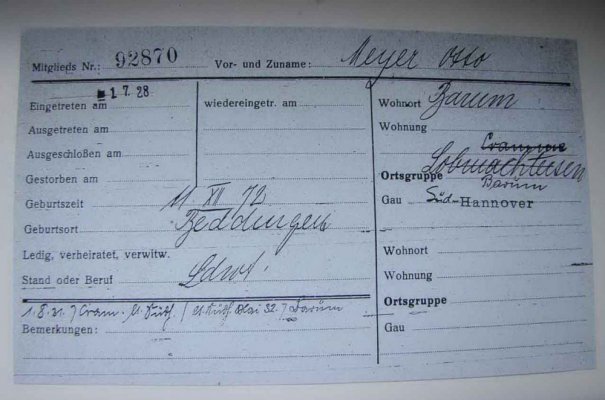 Mitglieds Nr.: 92870 Vor- und Zuname: Meyer Otto
Eingetreten am 1.7.28
Ausgetreten am
Ausgeschloßen am
Gestorben am
Geburtszeit 11 XII 72
Geburtsort Beddingen
Ledig, verheiratet, verwitw.
Stand oder Beruf Ldwt.
1.8.31. Cram. / Mai 32. Barum
Bemerkungen:
wiedereingetr. am
Wohnort Barum
Wohnung
Cramme
Ortsgruppe Lobmachtersen
Barum
Gau Süd-Hannover
Wohnort
Wohnung
Ortsgruppe
Gau